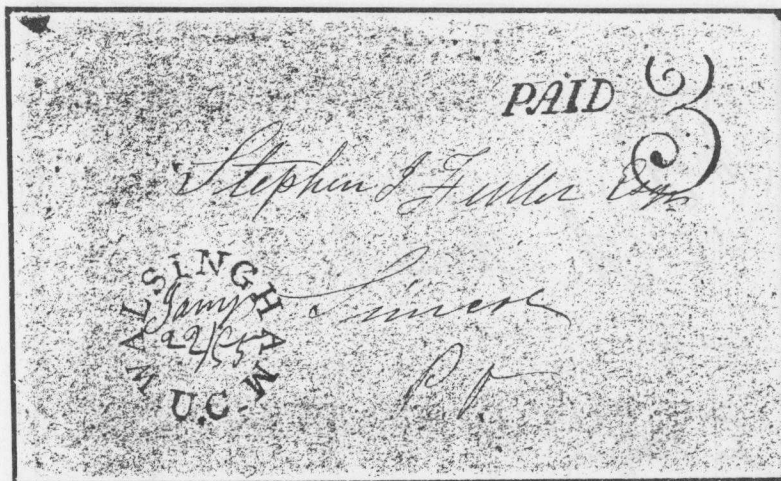 PAID 3
Stephen J Fuller Esqr
WALSINGHAM U.C
Jany 22/55
Simcoe
P.O